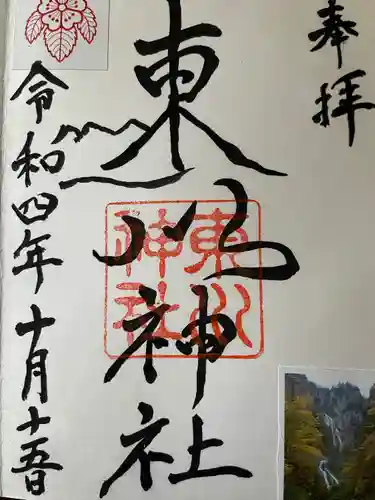 奉拝
東川神社
東川神社
令和四年十月十五日